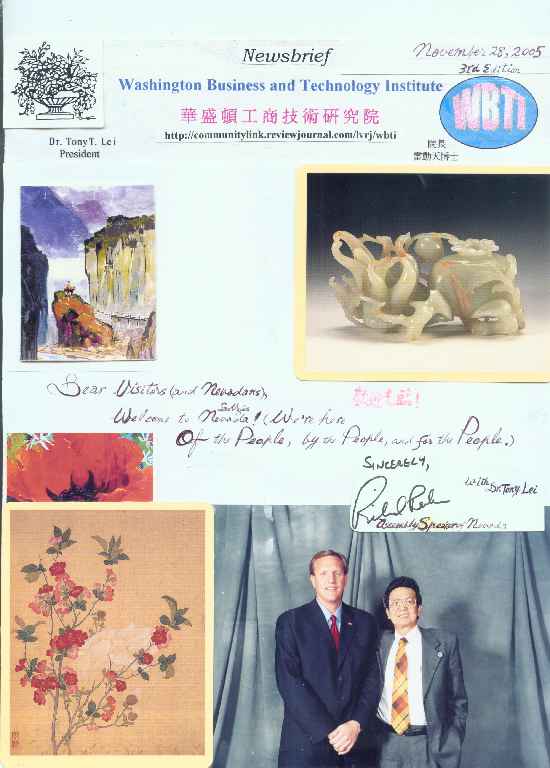 Newsbrief
November 28, 2005
3rd Edition
Washington Business and Technology Institute
WBTI
華盛頓工商技術研究院
http://communitylink.reviewjournal.com/lvrj/wbti
Dr. Tony T. Lei
President
院長
雷動天博士
Dear Visitors (and Nevadans),
Welcome to Nevada! (We're here
Of the People, by the People, and for the People.)
SINCERELY,
with Dr. Tony Lei
Assembly Speaker of Nevada